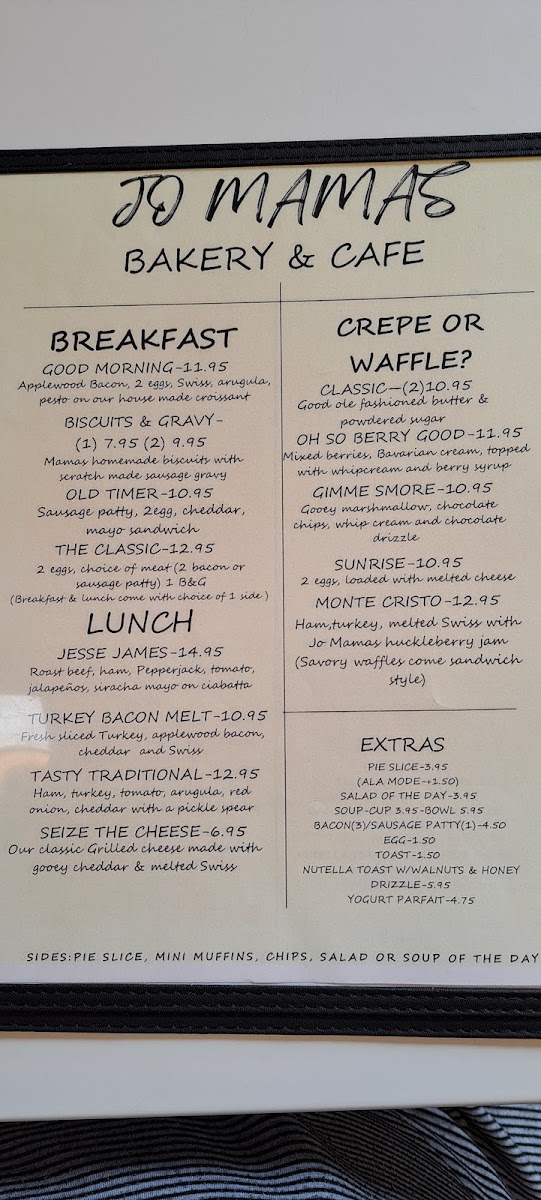 JO MAMAS
BAKERY & CAFE
BREAKFAST
GOOD MORNING-11.95
Applewood Bacon, 2 eggs, Swiss, arugula,
pesto on our house made croissant
BISCUITS & GRAVY-
(1) 7.95 (2) 9.95
Mamas homemade biscuits with
scratch made sausage gravy
OLD TIMER-10.95
Sausage patty, 2egg, cheddar,
mayo sandwich
THE CLASSIC-12.95
2 eggs, choice of meat (2 bacon or
sausage patty) 1 B&G
(Breakfast & lunch come with choice of 1 side)
LUNCH
JESSE JAMES-14.95
Roast beef, ham, Pepperjack, tomato,
jalapeños, siracha mayo on ciabatta
TURKEY BACON MELT-10.95
Fresh sliced Turkey, applewood bacon,
cheddar and Swiss
TASTY TRADITIONAL-12.95
Ham, turkey, tomato, arugula, red
onion, cheddar with a pickle spear
SEIZE THE CHEESE-6.95
Our classic Grilled cheese made with
gooey cheddar & melted Swiss
CREPE OR
WAFFLE?
CLASSIC—(2)10.95
Good ole fashioned butter &
powdered sugar
OH SO BERRY GOOD-11.95
Mixed berries, Bavarian cream, topped
with whipcream and berry syrup
GIMME SMORE-10.95
Gooey marshmallow, chocolate
chips, whip cream and chocolate
drizzle
SUNRISE-10.95
2 eggs, loaded with melted cheese
MONTE CRISTO-12.95
Ham,turkey, melted Swiss with
Jo Mamas huckleberry jam
(Savory waffles come sandwich
style)
EXTRAS
PIE SLICE-3.95
(ALA MODE-+1.50)
SALAD OF THE DAY-3.95
SOUP-CUP 3.95-BOWL 5.95
BACON(3)/SAUSAGE PATTY(1)-4.50
EGG-1.50
TOAST-1.50
NUTELLA TOAST W/WALNUTS & HONEY
DRIZZLE-5.95
YOGURT PARFAIT-4.75
SIDES:PIE SLICE, MINI MUFFINS, CHIPS, SALAD OR SOUP OF THE DAY